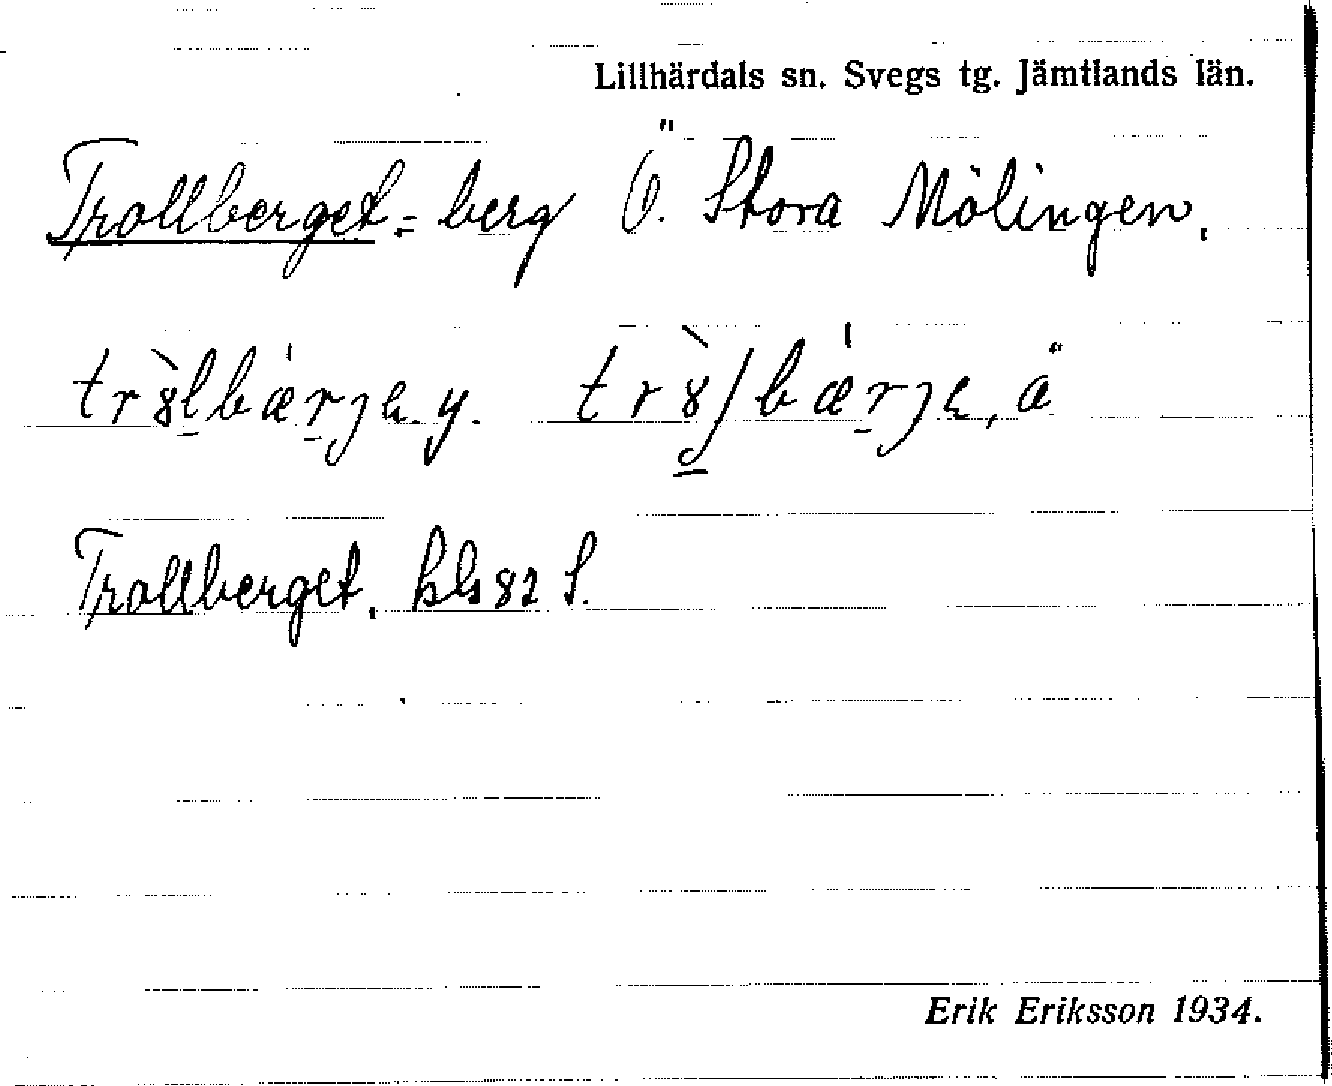 Lillhärdals sn. Svegs tg. Jämtlands län.
Trollberget = berg Ö. Stora Mölingen.
Trollberget, kbl 82 S.
Erik Eriksson 1934.